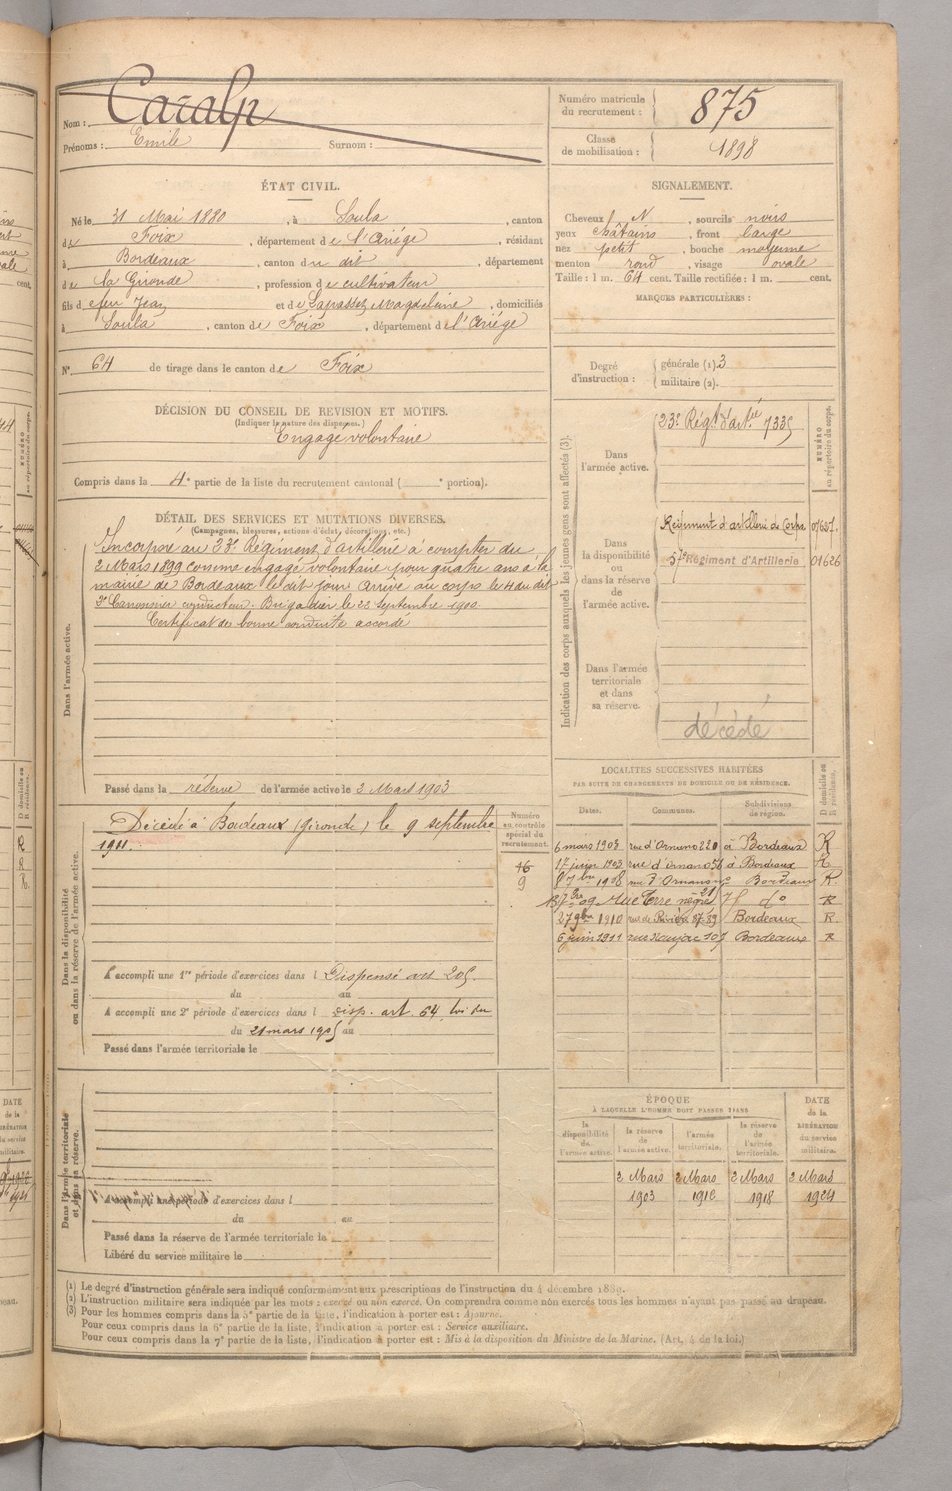 Nom : Caralp
Prénoms : Emile Surnom :
Numéro matricule du recrutement : 875
Classe de mobilisation : 1898
ÉTAT CIVIL.
Né le 31 Mai 1880, à Soula, canton
de Foix, département de l'Ariége, résidant
à Bordeaux, canton du dit, département
de la Gironde, profession de cultivateur
fils de feu Jean et de Lapasset, Magdeleine, domiciliés
à Soula, canton de Foix, département de l'Ariége
N° 64 de tirage dans le canton de Foix
SIGNALEMENT.
Cheveux N, sourcils noirs
yeux châtains, front large
nez petit, bouche moyenne
menton rond, visage ovale
Taille : 1 m. 64 cent. Taille rectifiée : 1 m. cent.
MARQUES PARTICULIÈRES :
Degré d'instruction : générale (1). 3
militaire (2).
DÉCISION DU CONSEIL DE REVISION ET MOTIFS.
(Indiquer la nature des dispenses.)
Engagé volontaire
Compris dans la 4e partie de la liste du recrutement cantonal ( e portion).
DÉTAIL DES SERVICES ET MUTATIONS DIVERSES.
(Campagnes, blessures, actions d'éclat, décorations, etc.)
Dans l'armée active.
Incorporé au 23e Régiment d'artillerie à compter du
2 Mars 1899 comme engagé volontaire pour quatre ans à la
mairie de Bordeaux le dit jour Arrivé au corps le 4 du dit
2e Canonnier conducteur. Brigadier le 22 septembre 1900
Certificat de bonne conduite accordé
Passé dans la réserve de l'armée active le 2 Mars 1903
Indication des corps auxquels les jeunes gens sont affectés (3).
NUMÉRO au répertoire du corps.
Dans l'armée active.
23e Régt d'artie 7335
Dans la disponibilité ou dans la réserve de l'armée active.
Régiment d'artillerie de Corps 01637
57e Régiment d'Artillerie 01626
Dans l'armée territoriale et dans sa réserve.
décédé
Dans la disponibilité ou dans la réserve de l'armée active.
Numéro au contrôle spécial du recrutement.
16
9
Décédé à Bordeaux (Gironde) le 9 septembre
1911
A accompli une 1re période d'exercices dans l Dispensé art 205.
du au
A accompli une 2e période d'exercices dans l Disp. art. 64, loi du
du 21 mars 1905 au
Passé dans l'armée territoriale le
LOCALITÉS SUCCESSIVES HABITÉES
PAR SUITE DE CHANGEMENTS DE DOMICILE OU DE RÉSIDENCE.
Dates. Communes. Subdivisions de région. D domicile ou R résidence.
6 mars 1903 rue d'Ornano 220 à Bordeaux R
17 juin 1903 rue d'Ornano 56 à Bordeaux R
8 7bre 1908 rue d'Ornano Bordeaux R
rue Terre nègre do R
27 9bre 1910 rue de Rivière 87-89 Bordeaux R
6 juin 1911 Bordeaux R
Dans l'armée territoriale et dans sa réserve.
A accompli une période d'exercices dans l
du au
Passé dans la réserve de l'armée territoriale le
Libéré du service militaire le
ÉPOQUE
À LAQUELLE L'HOMME DOIT PASSER DANS
la disponibilité de l'armée active. la réserve de l'armée active. l'armée territoriale. la réserve de l'armée territoriale. DATE de la LIBÉRATION du service militaire.
2 Mars 2 Mars 2 Mars 2 Mars
1903 1910 1918 1924
(1) Le degré d'instruction générale sera indiqué conformément aux prescriptions de l'instruction du 4 décembre 1889.
(2) L'instruction militaire sera indiquée par les mots : exercé ou non exercé. On comprendra comme non exercés tous les hommes n'ayant pas passé au drapeau.
(3) Pour les hommes compris dans la 5e partie de la liste, l'indication à porter est : Ajourné.
Pour ceux compris dans la 6e partie de la liste, l'indication à porter est : Service auxiliaire.
Pour ceux compris dans la 7e partie de la liste, l'indication à porter est : Mis à la disposition du Ministre de la Marine. (Art. 4 de la loi.)